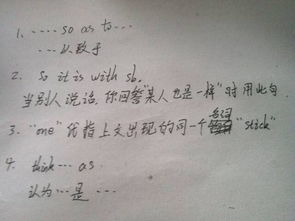 1. …… so as to …
… 以致于
2. So it is with sb.
当别人说话,你回答某人也是一样"时用此句.
3. "one" 代指上文出现的同一个名词 "stick"
4. think … as
认为 … 是 …